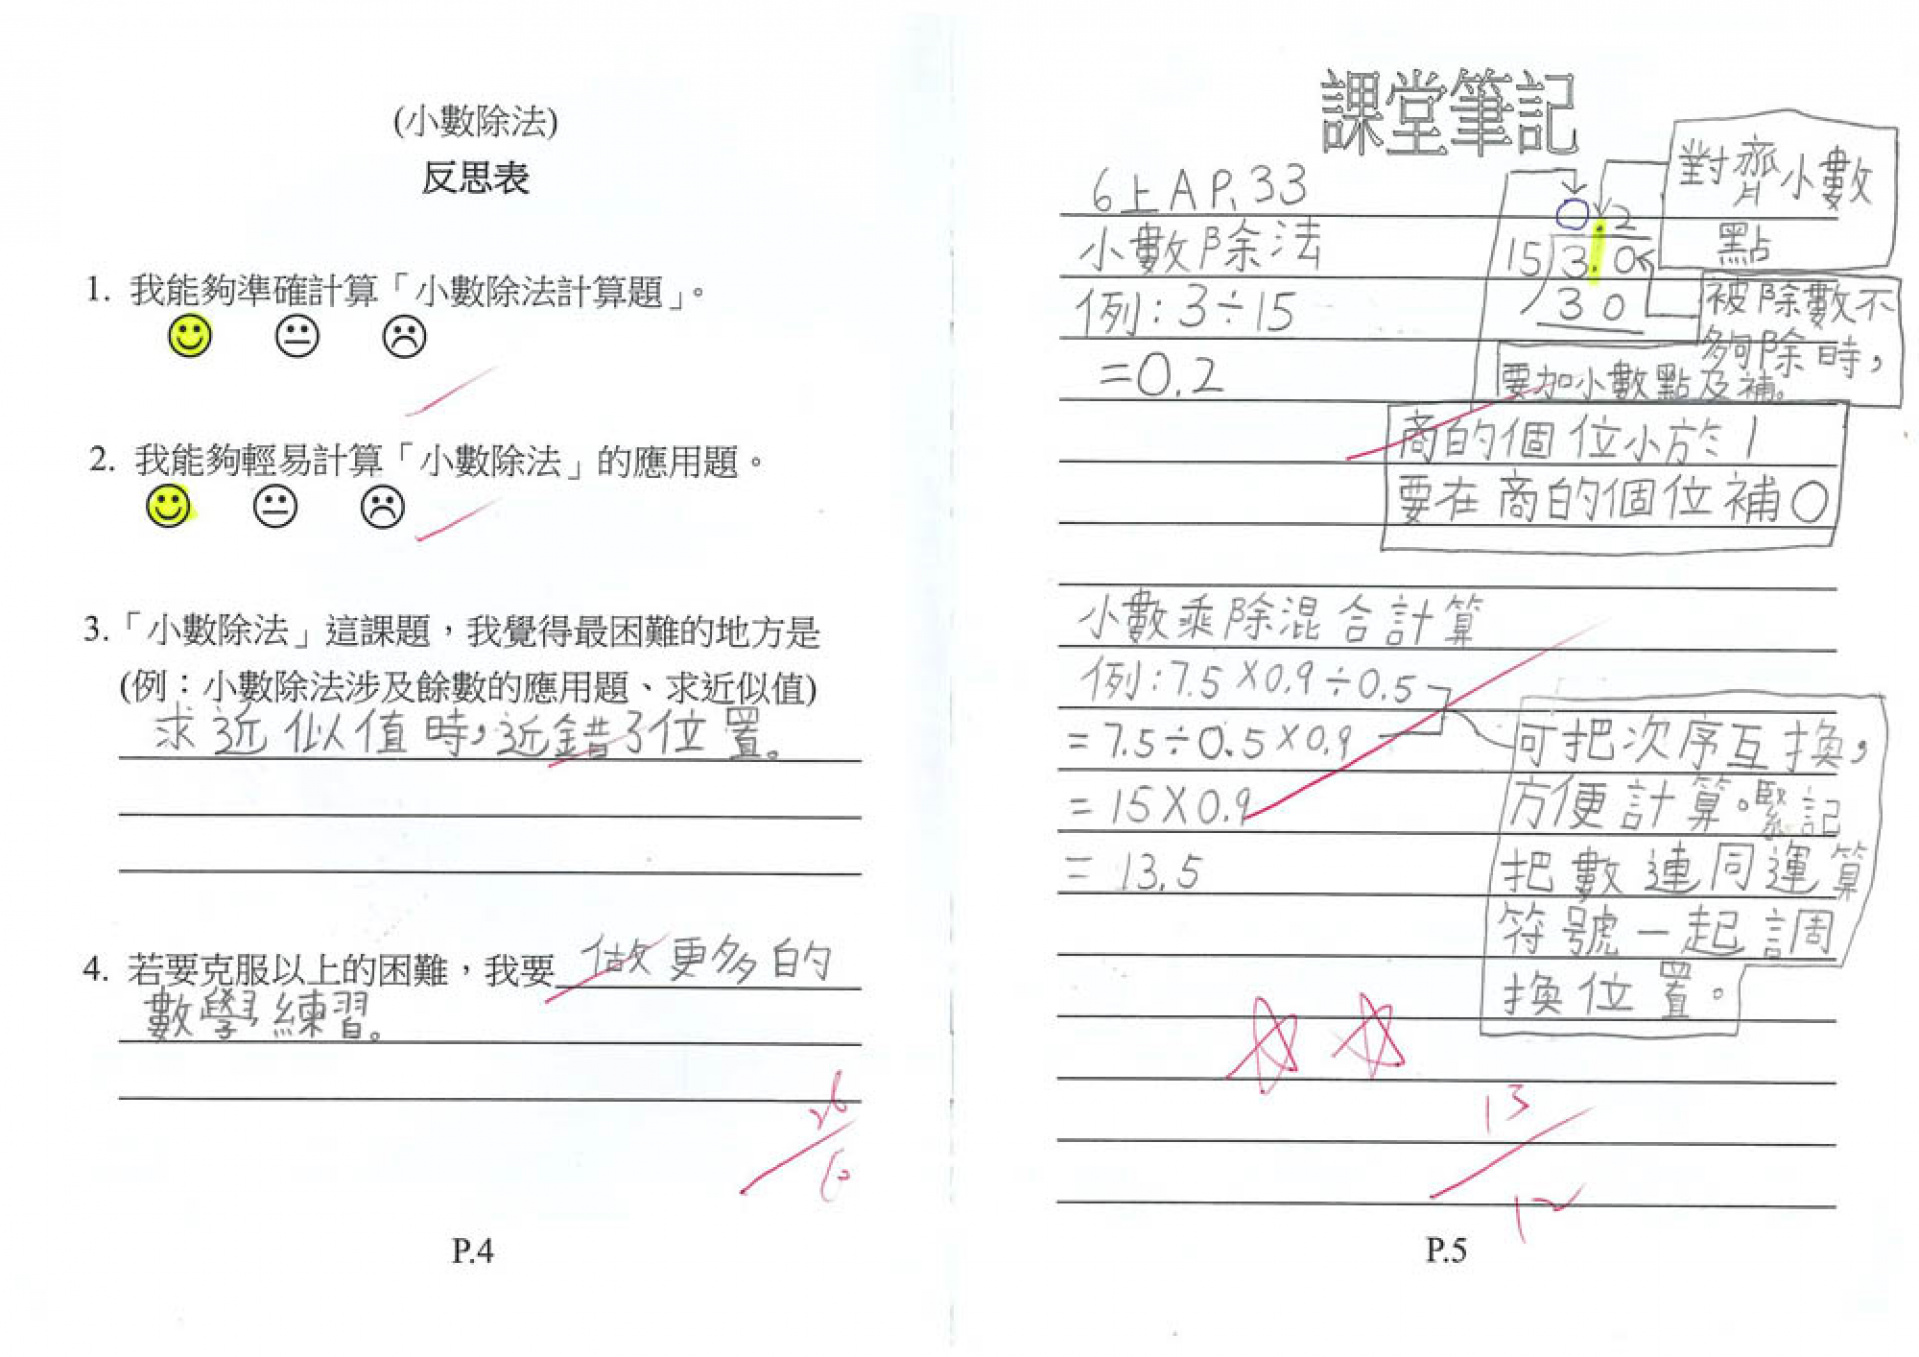 (小數除法)
反思表
1. 我能夠準確計算「小數除法計算題」。
2. 我能夠輕易計算「小數除法」的應用題。
3.「小數除法」這課題，我覺得最困難的地方是
(例：小數除法涉及餘數的應用題、求近似值)
求近似值時，近錯了位置。
4. 若要克服以上的困難，我要做更多的
數學練習。
26/
P.4
課堂筆記
6上A P.33
小數除法
例：3÷15
=0.2
0.2
15 3.0
3 0
對齊小數
點
被除數不
夠除時，
要加小數點及補。
商的個位小於1
要在商的個位補0
小數乘除混合計算
例：7.5×0.9÷0.5
=7.5÷0.5×0.9
=15×0.9
=13.5
可把次序互換，
方便計算。緊記
把數連同運算
符號一起調
換位置。
13/12
P.5